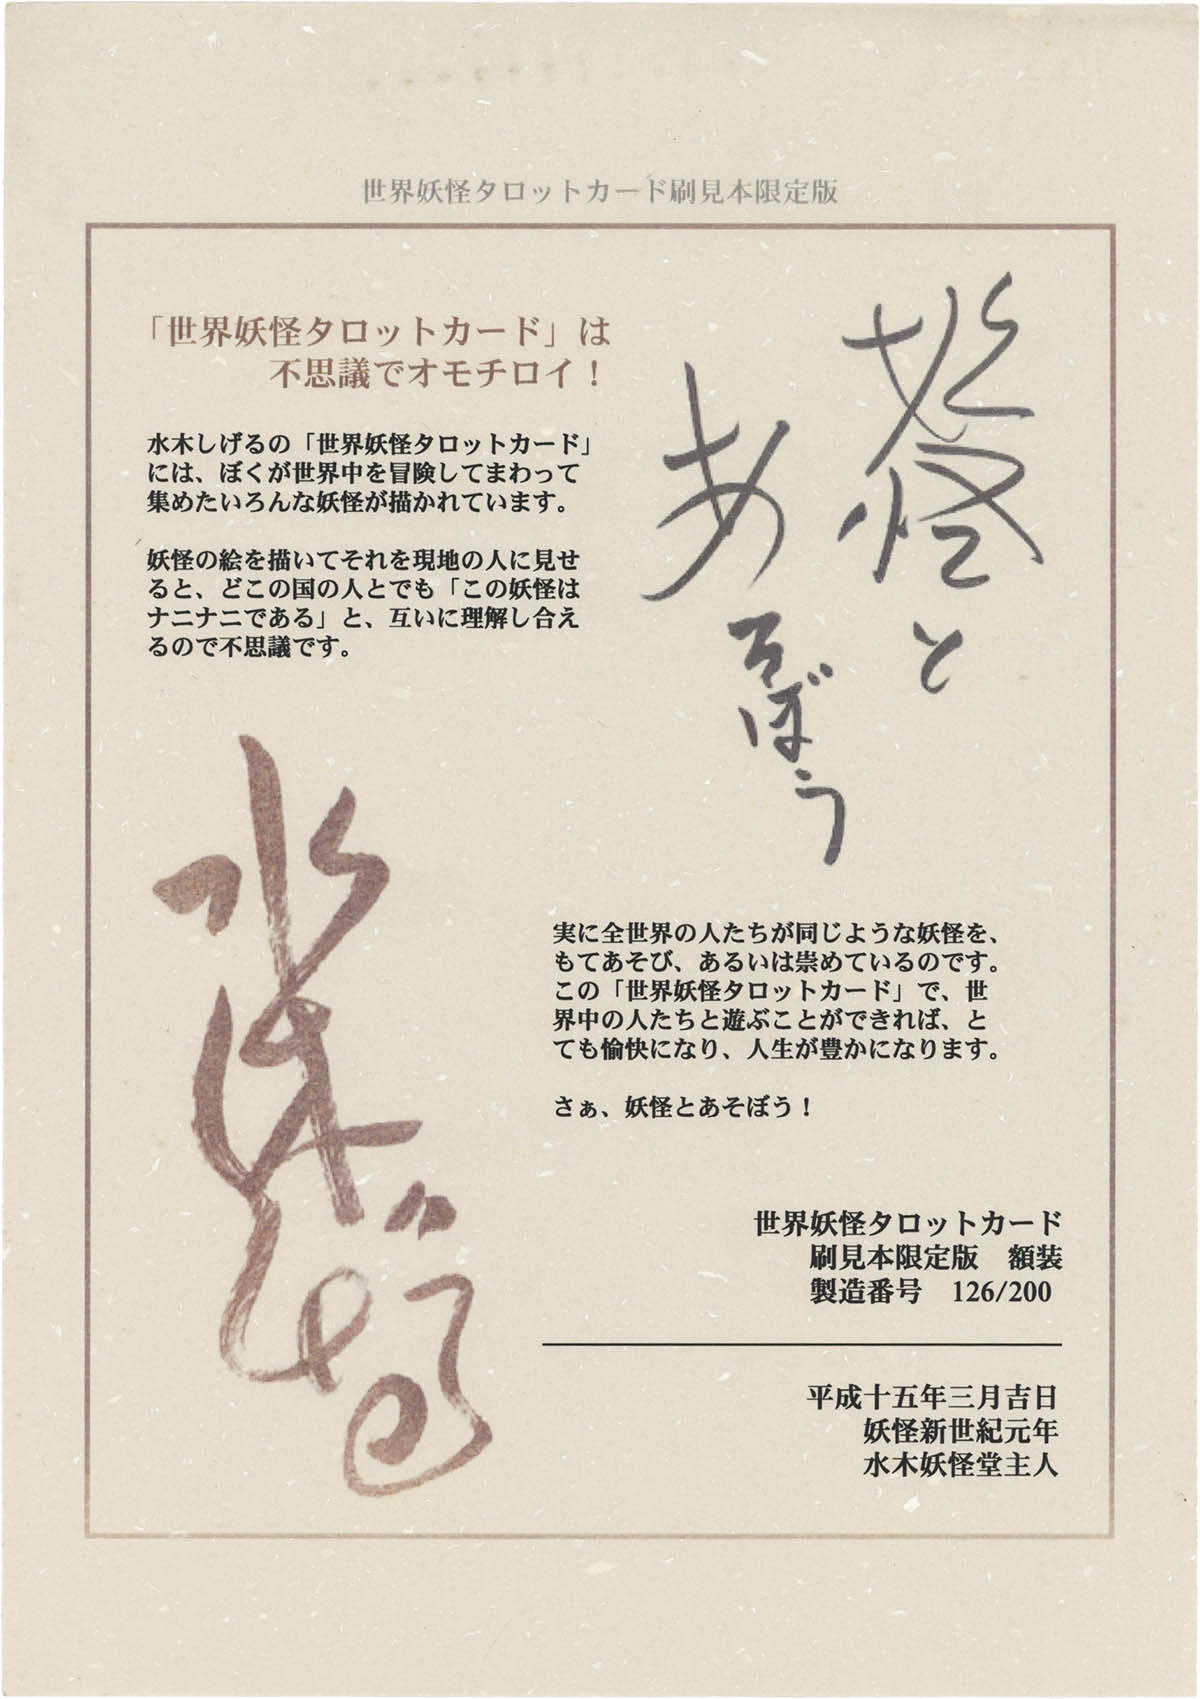 世界妖怪タロットカード刷見本限定版
「世界妖怪タロットカード」は
不思議でオモチロイ！
水木しげるの「世界妖怪タロットカード」
には、ぼくが世界中を冒険してまわって
集めたいろんな妖怪が描かれています。
妖怪の絵を描いてそれを現地の人に見せ
ると、どこの国の人とでも「この妖怪は
ナニナニである」と、互いに理解し合え
るので不思議です。
妖怪と
あそぼう
水木しげる
実に全世界の人たちが同じような妖怪を、
もてあそび、あるいは崇めているのです。
この「世界妖怪タロットカード」で、世
界中の人たちと遊ぶことができれば、と
ても愉快になり、人生が豊かになります。
さぁ、妖怪とあそぼう！
世界妖怪タロットカード
刷見本限定版　額装
製造番号　126/200
平成十五年三月吉日
妖怪新世紀元年
水木妖怪堂主人